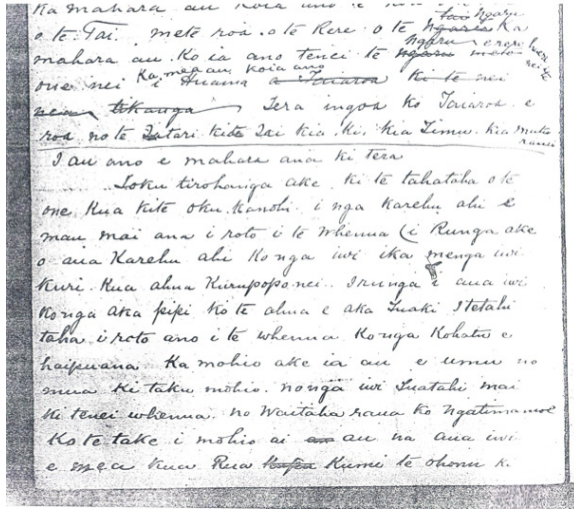 Ka mahara au koia ano te
o te Tai, me te roa o te Rere o te Ngaru Ka
mahara au. Ko ia ano tenei te ngaru
one nei Ka mea au koia ano i Huama a Taiaroa ki te nei
tikanga Tera ingoa ko Taiaroa e
roa no te Tatari kite Tai kia Ki, kia Timu, kia
I au ano e mahara ana ki tera
Toku tirohanga ake, ki te tahataha o te
one, Kua kite oku Kanohi i nga karehu ahi e
mau mai ana i roto i te Whenua (i Runga ake
o aua Karehu ahi Ko nga iwi ika me nga iwi
Kuri. Kua ahua Kurupopo nei. I runga i aua iwi
Ko nga aka pipi Ko te ahua e aka Tuaki I tetahi
taha i roto ano i te whenua Ko nga Kohatu e
haipuana Ka mohio ake ia au e umu no
mua Ki taku mohio. no nga iwi Tuatahi mai
Ki tenei whenua. no Waitaha raua ko Ngatimamoe
Ko te take i mohio ai au na aua iwi
e mea kua Rua Kumi te ohonu k.